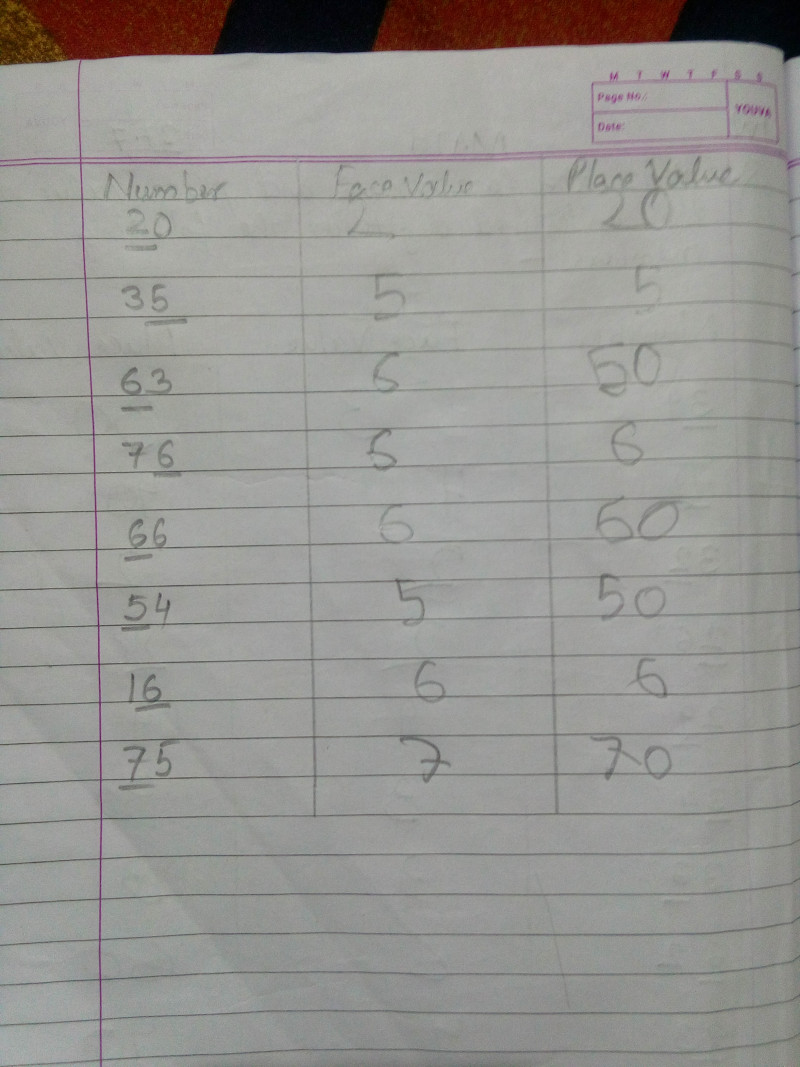 M T W T F S S
Page No.:
Date:
YOUVA
Number Face Value Place Value
20 2 20
35 5 5
63 6 60
76 6 6
66 6 60
54 5 50
16 6 6
75 7 70